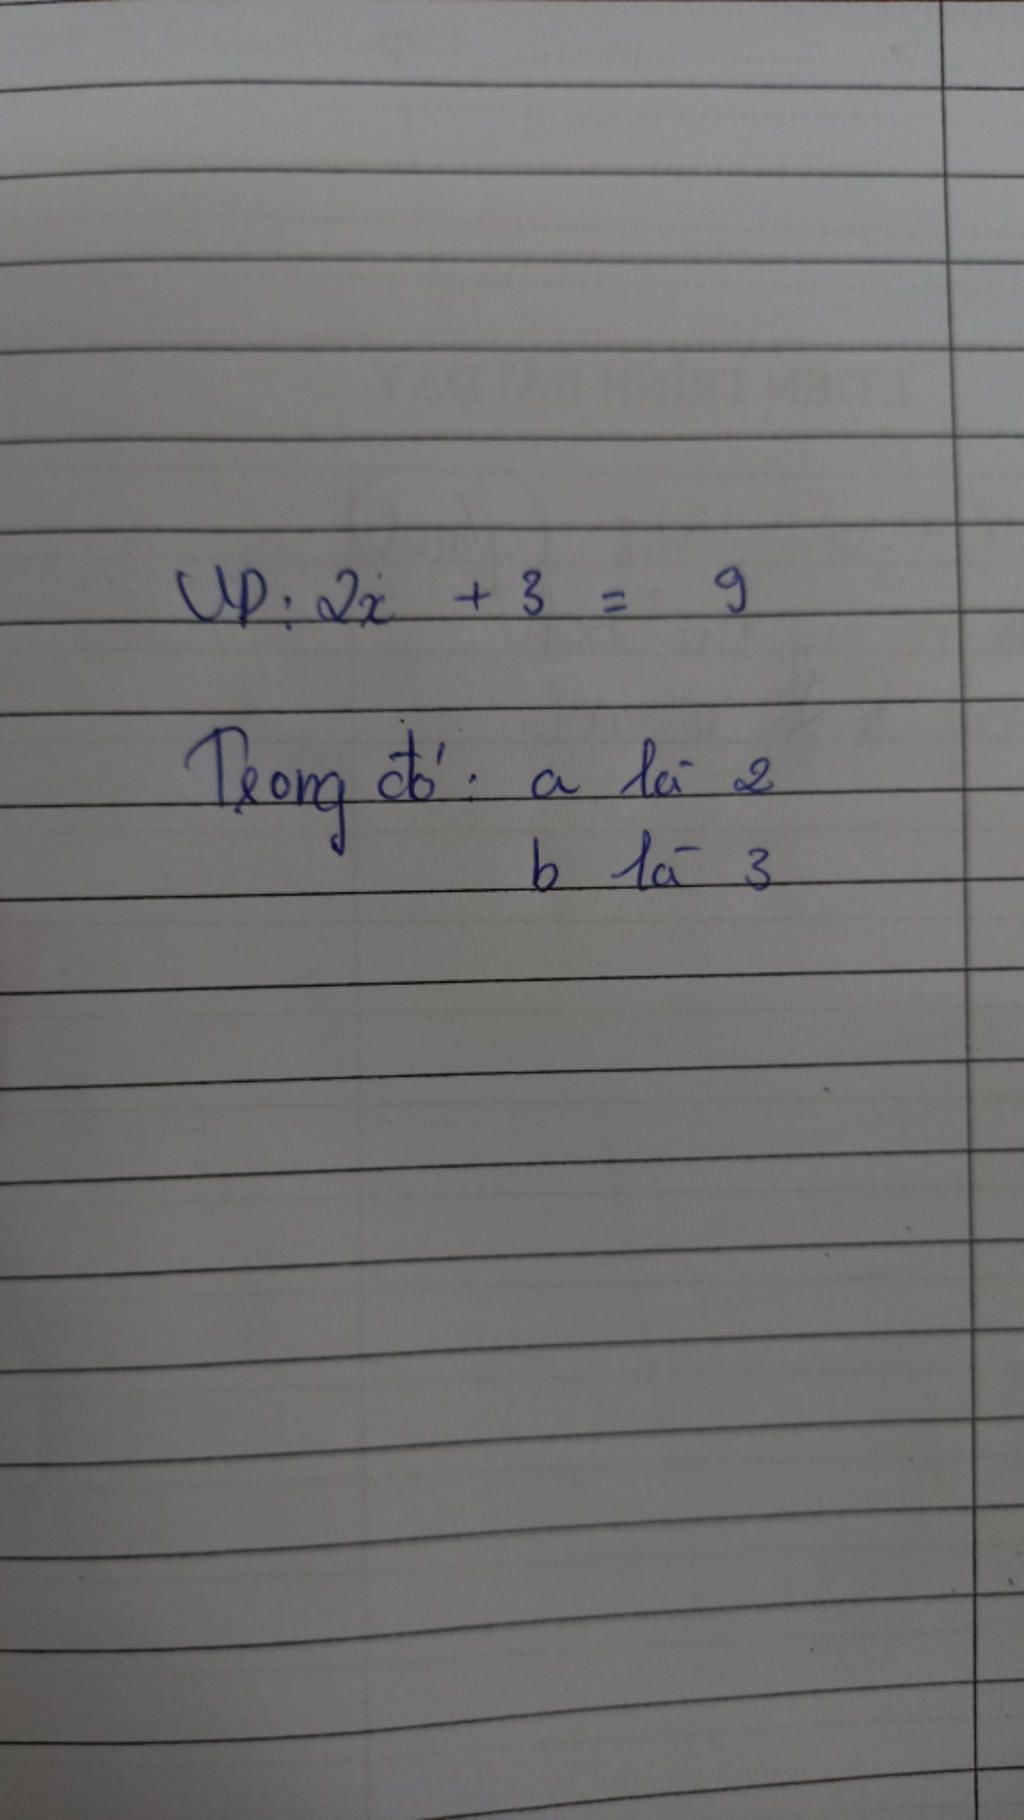 VD: 2x + 3 = 9
Trong đó: a là 2
b là 3